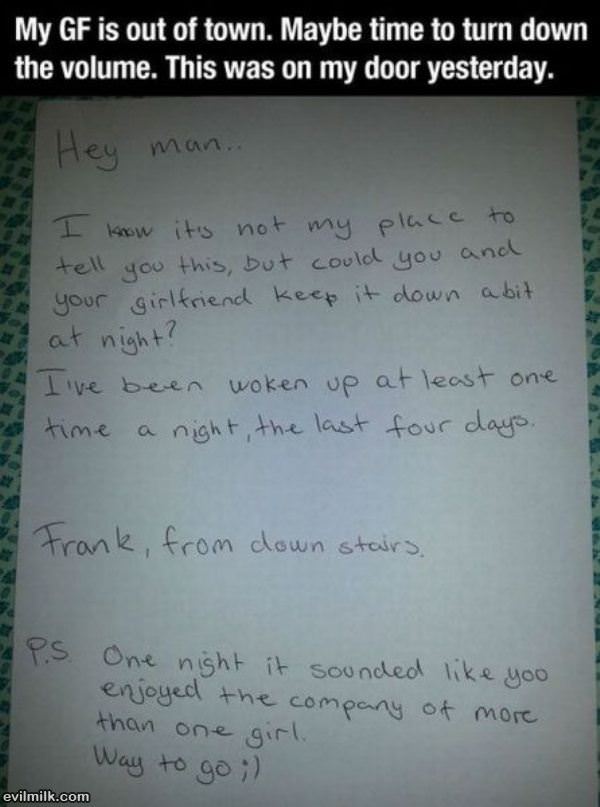 My GF is out of town. Maybe time to turn down
the volume. This was on my door yesterday.
Hey man..
I know it's not my place to
tell you this, but could you and
your girlfriend keep it down a bit
at night?
I've been woken up at least one
time a night, the last four days.
Frank, from down stairs.
P.S. One night it sounded like yoo
enjoyed the company of more
than one girl.
Way to go ;)
evilmilk.com